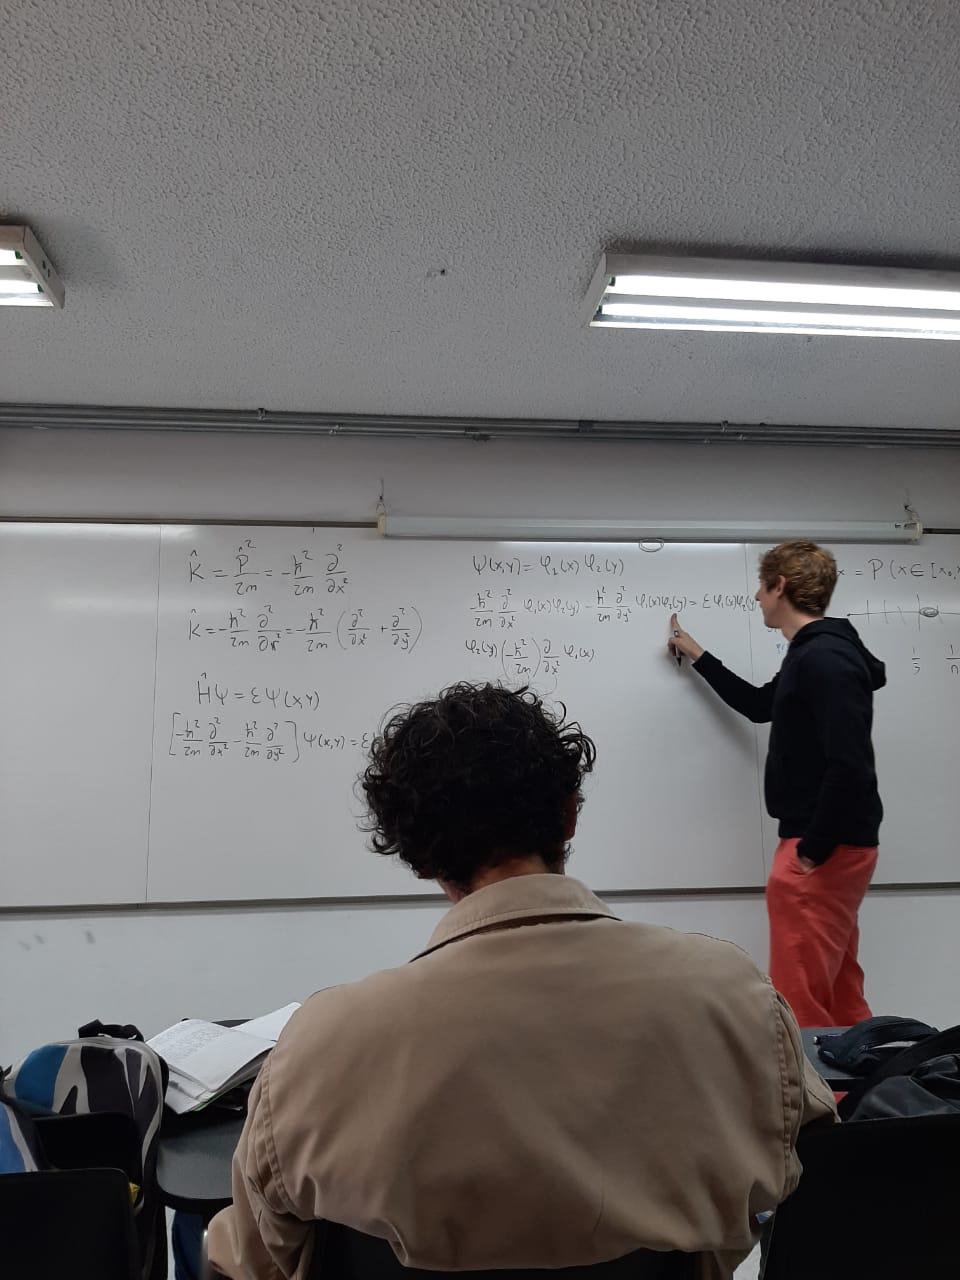 K̂ = P̂²/2m = -ħ²/2m ∂²/∂x²
K̂ = -ħ²/2m ∂²/∂x² = -ħ²/2m (∂²/∂x² + ∂²/∂y²)
ĤΨ = εΨ(x,y)
[-ħ²/2m ∂²/∂x² - ħ²/2m ∂²/∂y²] Ψ(x,y) = ε
Ψ(x,y) = φ₁(x) φ₂(y)
-ħ²/2m ∂²/∂x² φ₁(x)φ₂(y) - ħ²/2m ∂²/∂y² φ₁(x)φ₂(y) = ε φ₁(x)φ₂(y)
φ₂(y) (-ħ²/2m) ∂/∂x² φ₁(x)
x = P(x ∈ [x₀,